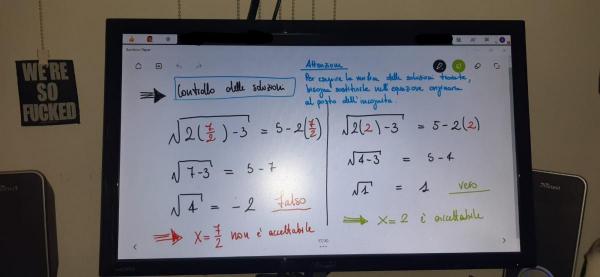 WE'RE
SO
FUCKED
Attenzione
Controllo delle soluzioni
Per eseguire la verifica delle soluzioni trovate,
bisogna sostituirle nell'equazione originaria
al posto dell'incognita.
√2(7/2)-3 = 5-2(7/2)
√7-3 = 5-7
√4 = -2 Falso
⇒ X=7/2 non è accettabile
√2(2)-3 = 5-2(2)
√4-3 = 5-4
√1 = 1 vero
⇒ X=2 è accettabile